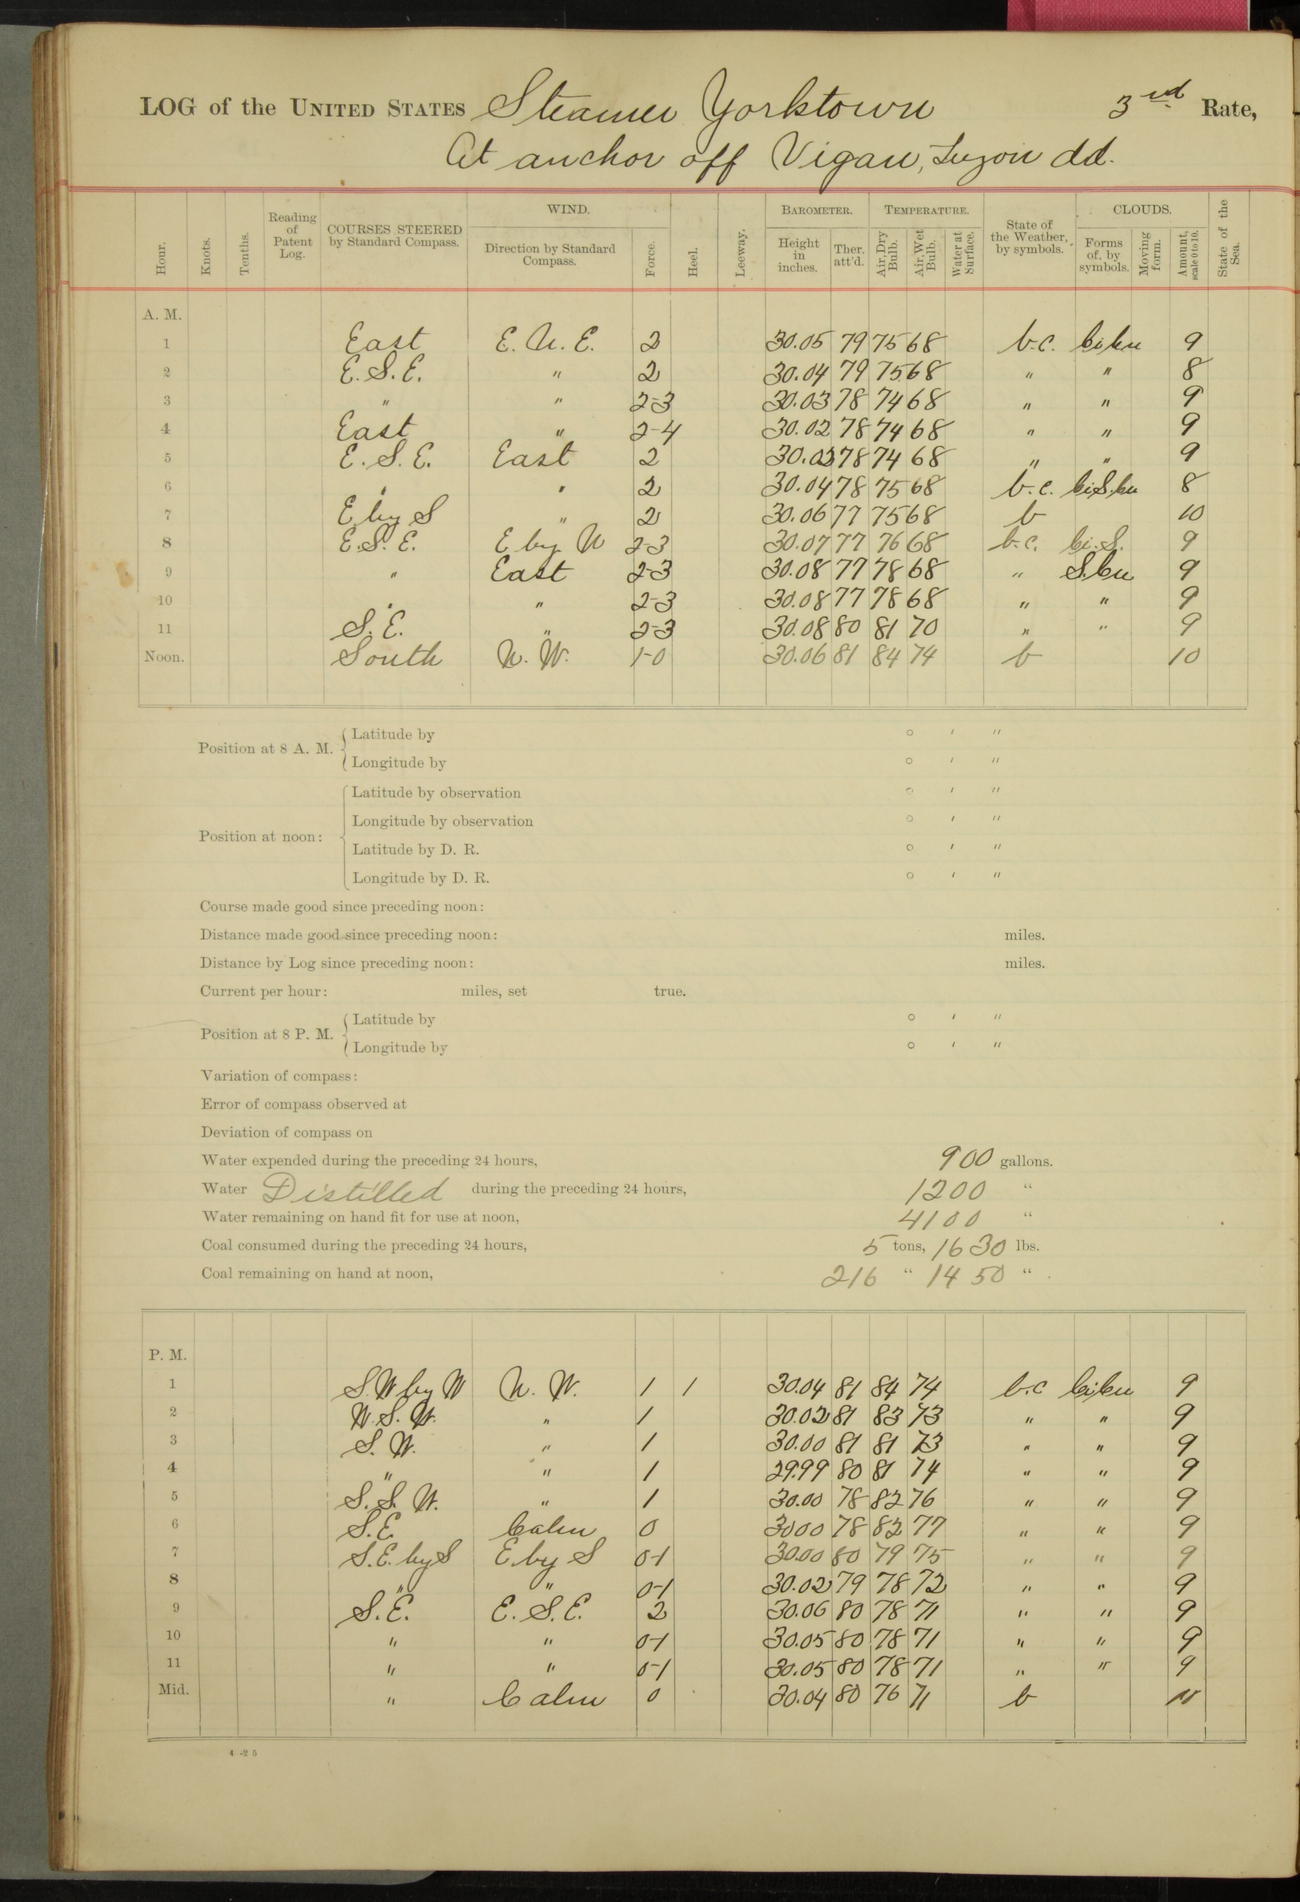 LOG of the UNITED STATES Steamer Yorktown 3rd Rate,
At anchor off Vigan, Luzon
Hour. Knots. Tenths. Reading of Patent Log. COURSES STEERED by Standard Compass. WIND. Direction by Standard Compass. Force. Heel. Leeway. BAROMETER. Height in inches. Ther. att'd. TEMPERATURE. Air, Dry Bulb. Air, Wet Bulb. Water at Surface. State of the Weather, by symbols. CLOUDS. Forms of, by symbols. Moving form. Amount, scale 0 to 10. State of the Sea.
A. M.
1 East E. N. E. 2 30.05 79 75 68 b.c. Ci.Cu 9
2 E. S. E. " 2 30.04 79 75 68 " " 8
3 " " 2-3 30.03 78 74 68 " " 9
4 East " 2-4 30.02 78 74 68 " " 9
5 E. S. E. East 2 30.03 78 74 68 " " 9
6 " " 2 30.04 78 75 68 b.c. Ci.S.Cu 8
7 E by S " 2 30.06 77 75 68 b 10
8 E.S.E. E by N 2-3 30.07 77 76 68 b.c. Ci.S. 9
9 " East 2-3 30.08 77 78 68 " S.Cu 9
10 " " 2-3 30.08 77 78 68 " " 9
11 S.E. " 2-3 30.08 80 81 70 " " 9
Noon. South N. W. 1-0 30.06 81 84 74 b 10
Position at 8 A. M. Latitude by ° ′ ″
Longitude by ° ′ ″
Position at noon: Latitude by observation ° ′ ″
Longitude by observation ° ′ ″
Latitude by D. R. ° ′ ″
Longitude by D. R. ° ′ ″
Course made good since preceding noon:
Distance made good since preceding noon: miles.
Distance by Log since preceding noon: miles.
Current per hour: miles, set true.
Position at 8 P. M. Latitude by ° ′ ″
Longitude by ° ′ ″
Variation of compass:
Error of compass observed at
Deviation of compass on
Water expended during the preceding 24 hours, 900 gallons.
Water Distilled during the preceding 24 hours, 1200 "
Water remaining on hand fit for use at noon, 4100 "
Coal consumed during the preceding 24 hours, 5 tons, 1630 lbs.
Coal remaining on hand at noon, 216 " 1450 "
P. M.
1 S.W by W N. W. 1 1 30.04 81 84 74 b.c Ci.Cu 9
2 W. S. W. " 1 30.02 81 83 73 " " 9
3 S. W. " 1 30.00 81 81 73 " " 9
4 " " 1 29.99 80 81 74 " " 9
5 S. S. W. " 1 30.00 78 82 76 " " 9
6 S.E. Calm 0 30.00 78 82 77 " " 9
7 S.E. by S E. by S 0-1 30.00 80 79 75 " " 9
8 " " 0-1 30.02 79 78 72 " " 9
9 S.E. E. S. E. 2 30.06 80 78 71 " " 9
10 " " 0-1 30.05 80 78 71 " " 9
11 " " 0-1 30.05 80 78 71 " " 9
Mid. " Calm 0 30.04 80 76 71 b 10
4-25